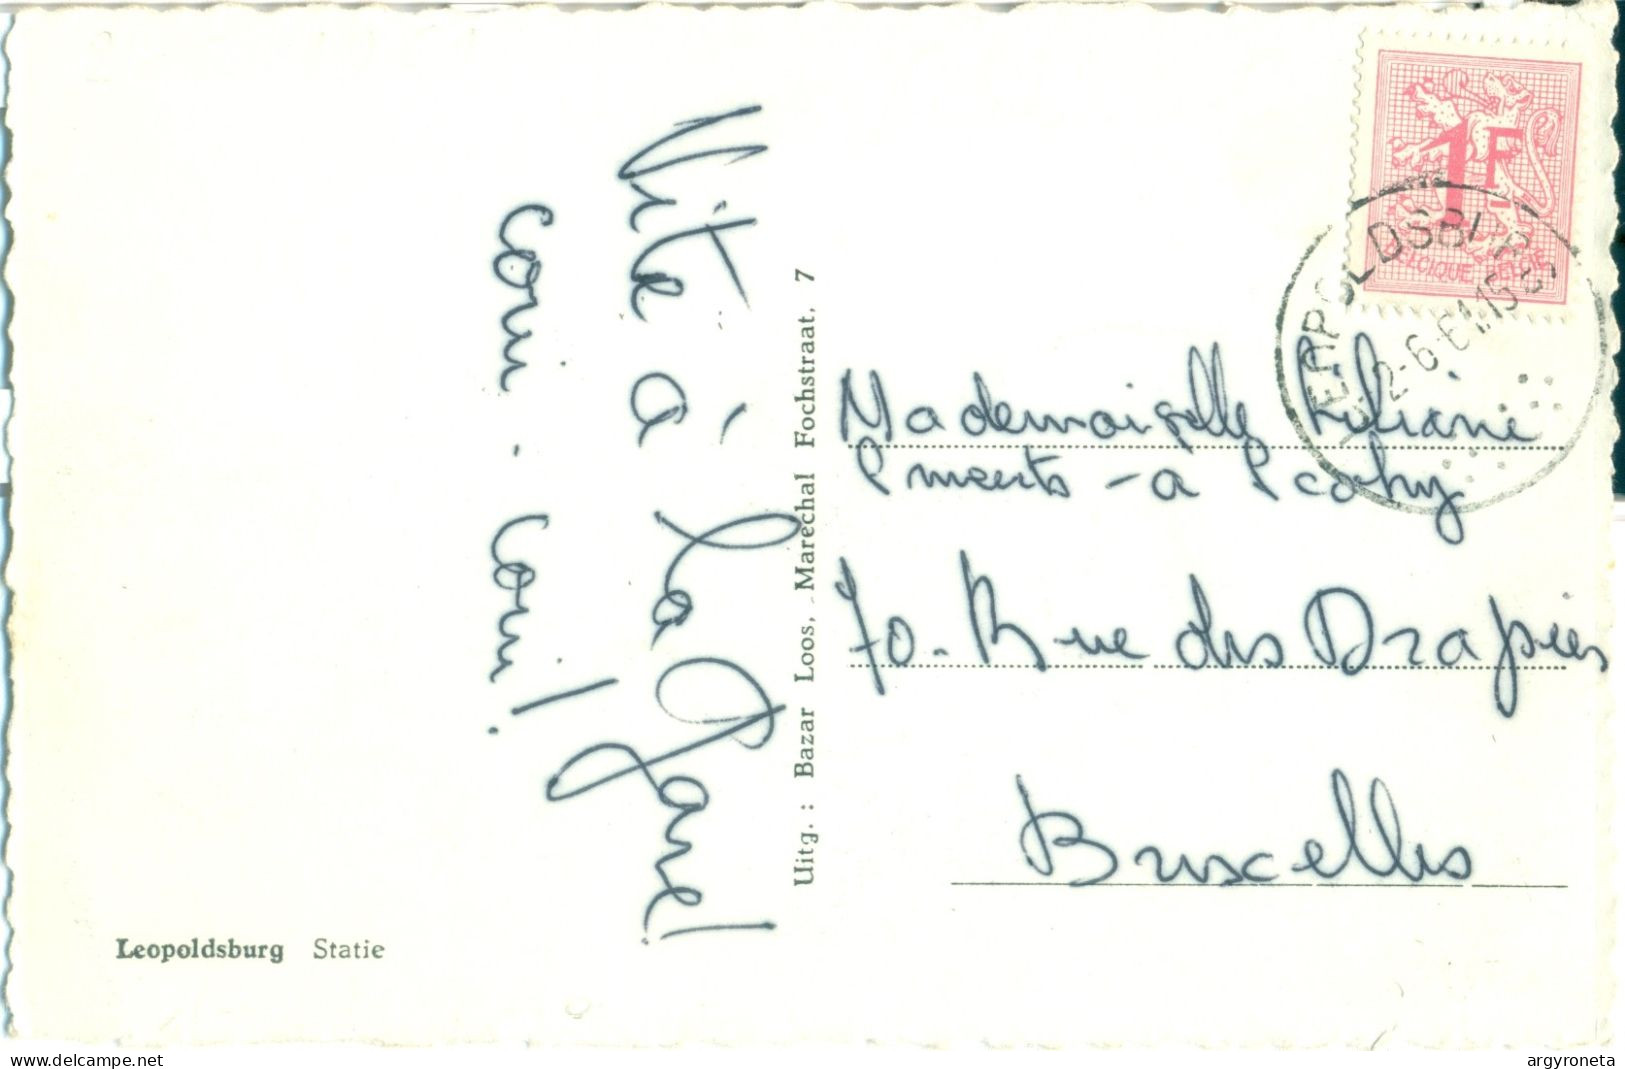 Vite à la Gare!
coui. coui!
Uitg. : Bazar Loos, Marechal Fochstraat, 7
1F
BELGIQUE BELGIË
LEOPOLDSBURG
2-6-61.15
Mademoiselle Liliane
à
70. Rue des Drapiers
Bruxelles
Leopoldsburg Statie
www.delcampe.net
argyroneta